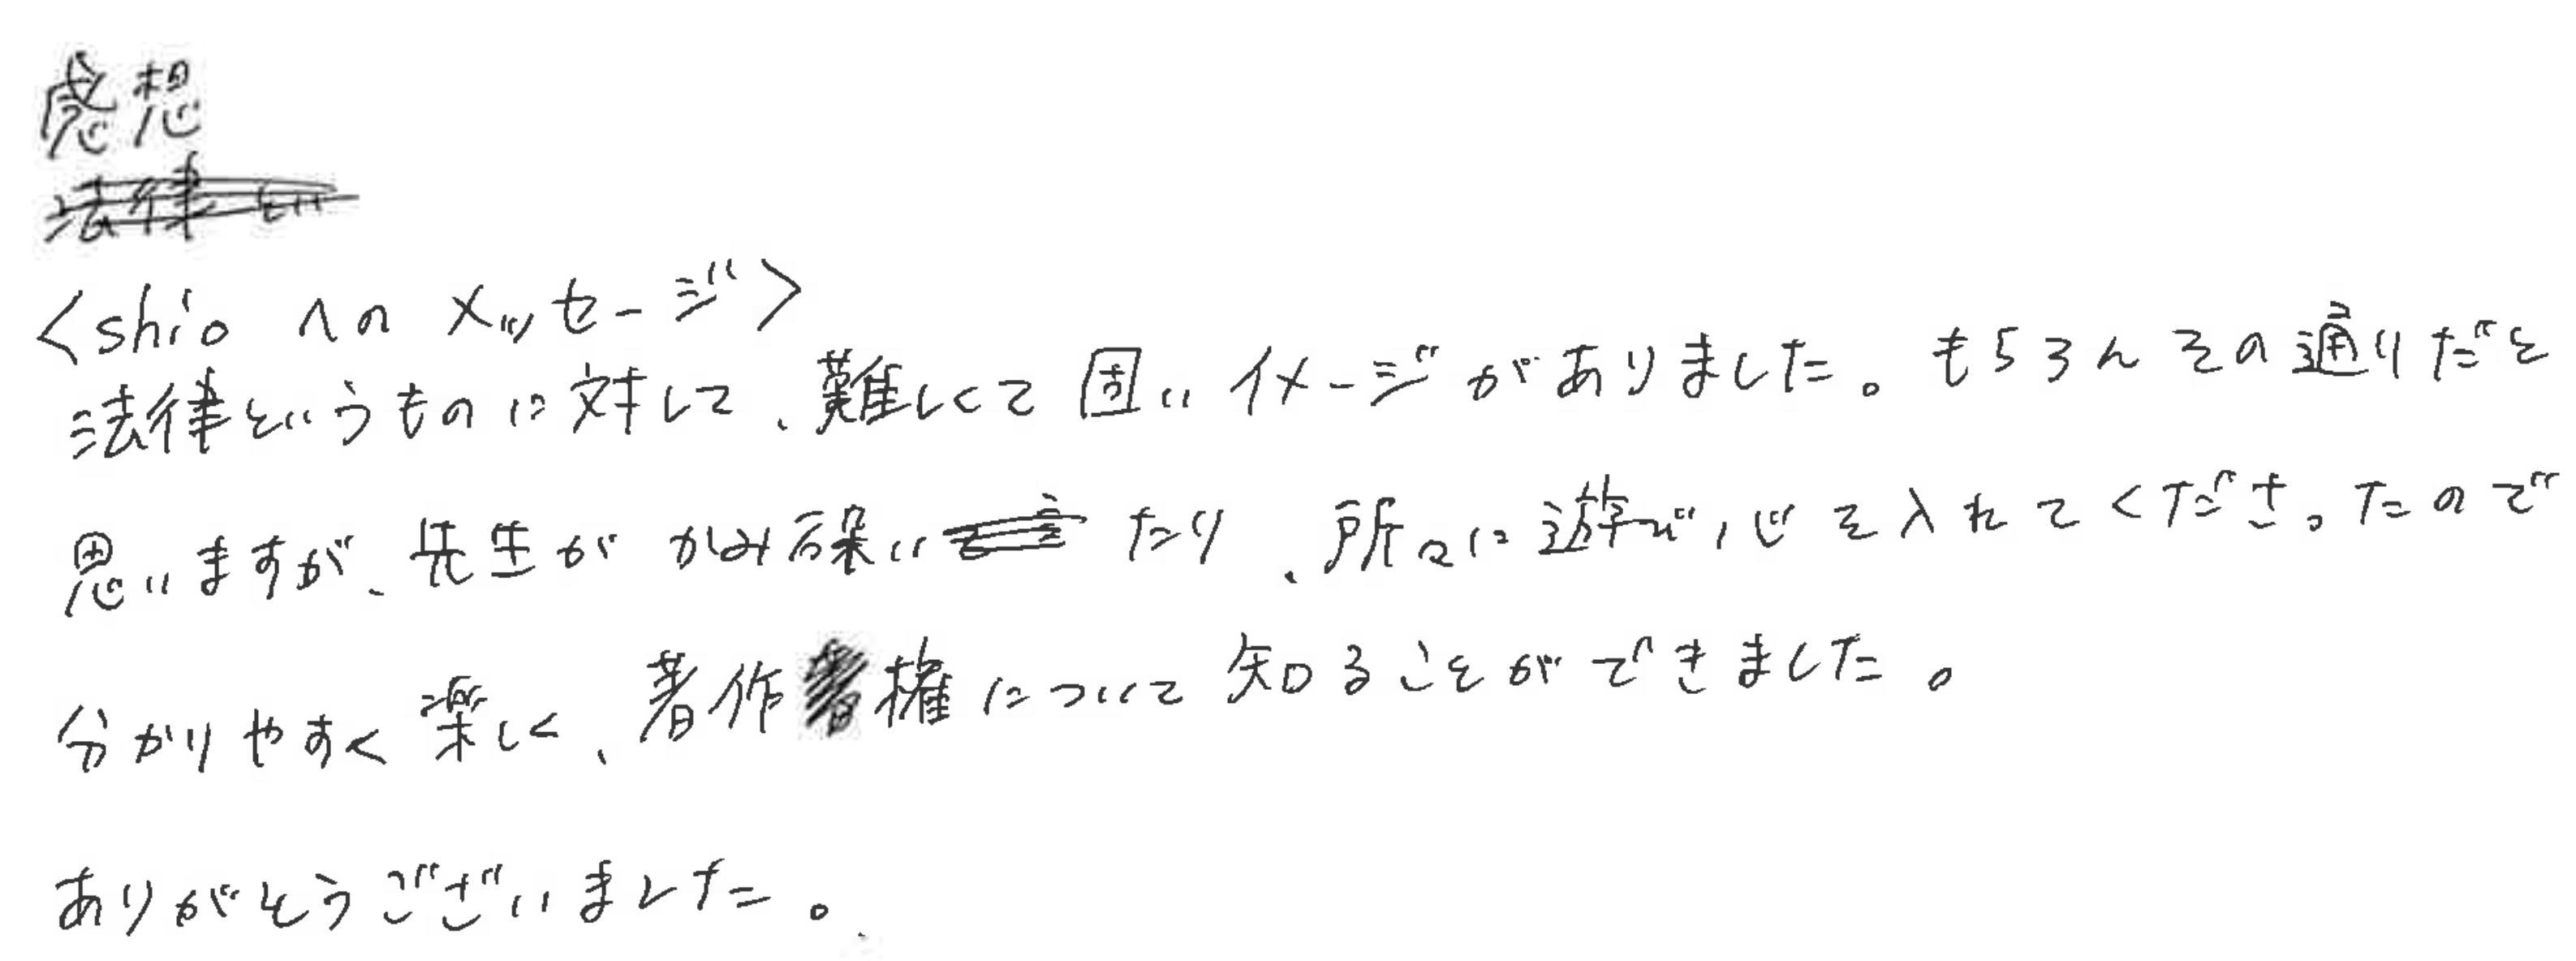 感想
<shioへのメッセージ>
法律というものに対して、難しくて固いイメージがありました。もちろんその通りだと
思いますが、先生がかみ砕いたり、所々に遊び心を入れてくださったので
分かりやすく楽しく、著作権について知ることができました。
ありがとうございました。